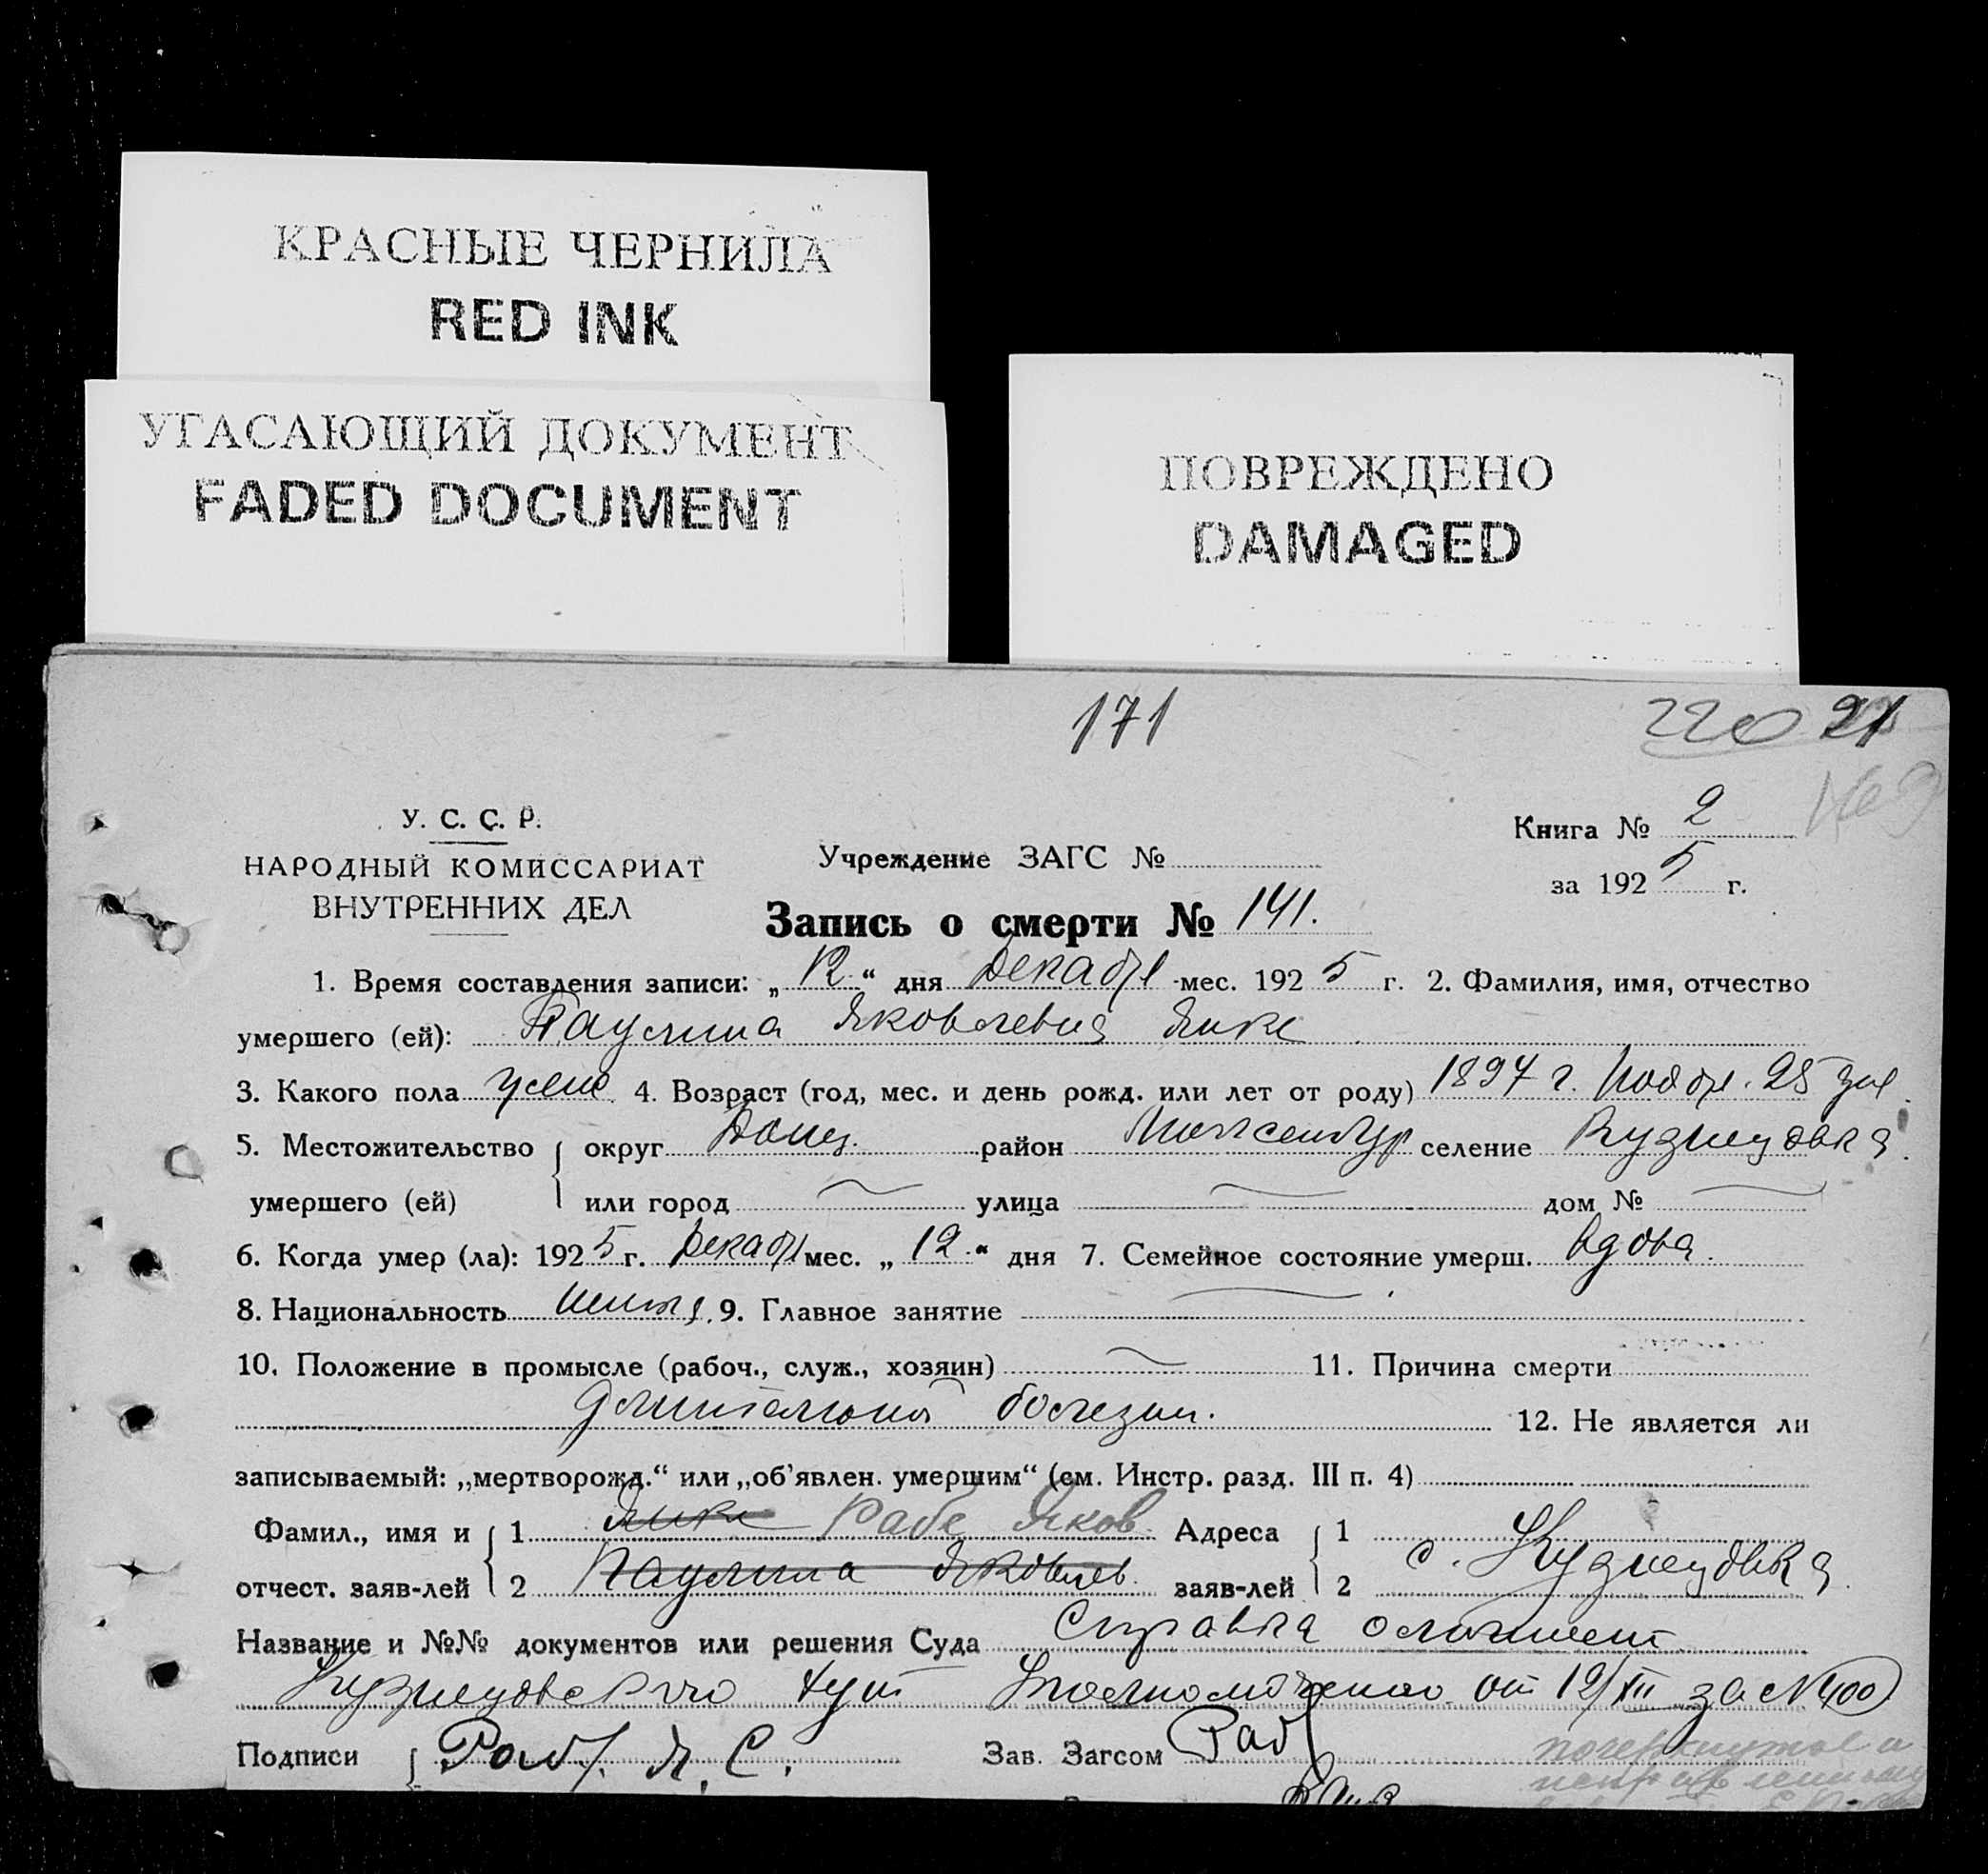 КРАСНЫЕ ЧЕРНИЛА
RED INK
УГАСАЮЩИЙ ДОКУМЕНТ
FADED DOCUMENT
ПОВРЕЖДЕНО
DAMAGED
171
220 21
У. С. С. Р.
НАРОДНЫЙ КОМИССАРИАТ
ВНУТРЕННИХ ДЕЛ
Учреждение ЗАГС №
Книга № 2
за 1925 г.
Запись о смерти № 141.
1. Время составления записи: „12“ дня Декабря мес. 1925 г. 2. Фамилия, имя, отчество
умершего (ей): Паулина Яковлевна Янке
3. Какого пола жен. 4. Возраст (год, мес. и день рожд. или лет от роду) 1894 г. Ноябр. 25 дня
5. Местожительство округ Донец. район селение Кузнецовка
умершего (ей) или город — улица — дом № —
6. Когда умер (ла): 1925 г. Декабря мес. „12“ дня 7. Семейное состояние умерш. вдова.
8. Национальность 9. Главное занятие —
10. Положение в промысле (рабоч., служ., хозяин) — 11. Причина смерти
длительной болезни. 12. Не является ли
записываемый: „мертворожд.“ или „об'явлен. умершим“ (см. Инстр. разд. III п. 4)
Фамил., имя и 1 Янке Рабе Яков Адреса 1
отчест. заяв-лей 2 Паулина Яковлев. заяв-лей 2 с. Кузнецовка
Название и №№ документов или решения Суда Справка
Кузнецовского хут от 12/XII за № 400
Подписи Раб. Я. С. Зав. Загсом Раб